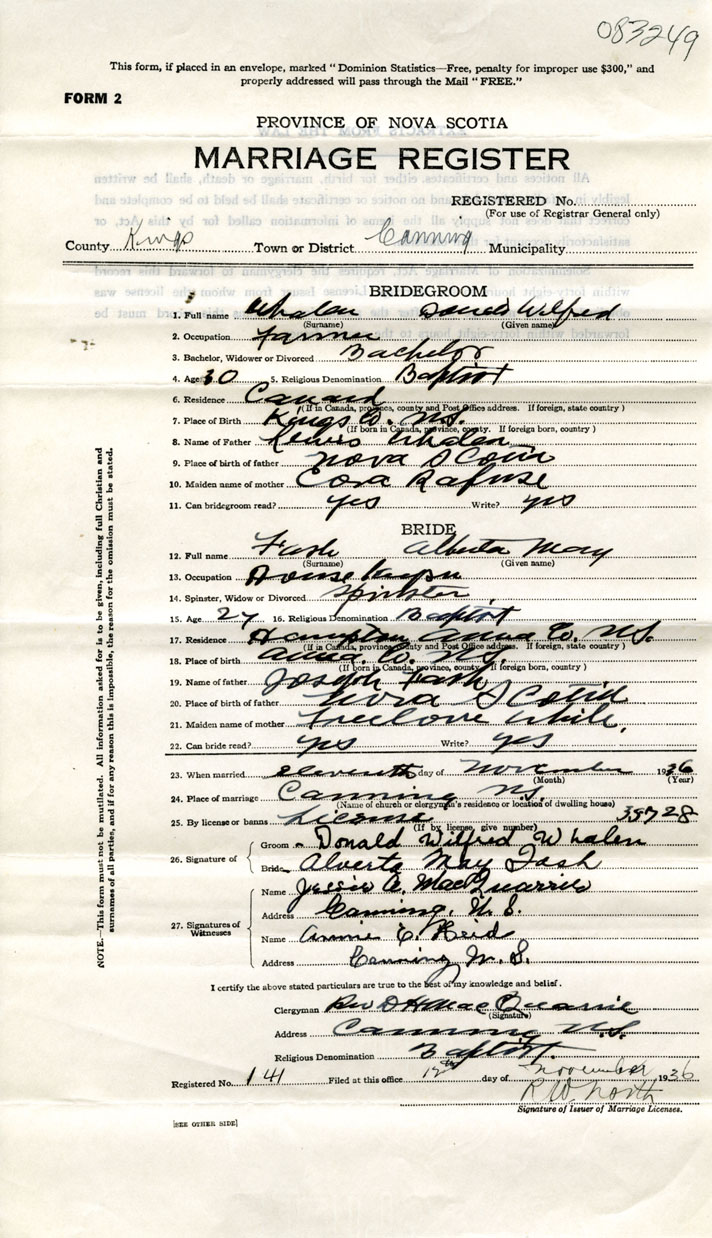 083249
This form, if placed in an envelope, marked "Dominion Statistics—Free, penalty for improper use $300," and
properly addressed will pass through the Mail "FREE."
FORM 2
PROVINCE OF NOVA SCOTIA
MARRIAGE REGISTER
REGISTERED No.
(For use of Registrar General only)
County Kings Town or District Canning Municipality
BRIDEGROOM
1. Full name Whalen Donald Wilfred
(Surname) (Given name)
2. Occupation Farmer
3. Bachelor, Widower or Divorced Bachelor
4. Age 30 5. Religious Denomination Baptist
6. Residence Canard
(If in Canada, province, county and Post Office address. If foreign, state country)
7. Place of Birth Kings Co. N.S.
(If born in Canada, province, county. If foreign born, country)
8. Name of Father Lewis Whalen
9. Place of birth of father Nova Scotia
10. Maiden name of mother Cora Rafuse
11. Can bridegroom read? yes Write? yes
BRIDE
12. Full name Fash Alberta May
(Surname) (Given name)
13. Occupation Housekeeper
14. Spinster, Widow or Divorced Spinster
15. Age 27 16. Religious Denomination Baptist
17. Residence Hampton Anna Co. N.S.
(If in Canada, province, county and Post Office address. If foreign, state country)
18. Place of birth Anna. Co. N.S.
(If born in Canada, province, county. If foreign born, country)
19. Name of father Joseph Fash
20. Place of birth of father Nova Scotia
21. Maiden name of mother Freelove White
22. Can bride read? yes Write? yes
23. When married eleventh day of November 1936
(Month) (Year)
24. Place of marriage Canning N.S.
(Name of church or clergyman's residence or location of dwelling house)
25. By license or banns License 39728
(If by license, give number)
26. Signature of
Groom Donald Wilfred Whalen
Bride Alverta May Fash
27. Signatures of Witnesses
Name Jessie A. MacQuarrie
Address Canning, N.S.
Name Annie E. Reid
Address Canning N.S.
I certify the above stated particulars are true to the best of my knowledge and belief.
Clergyman Rev D H MacQuarrie
(Signature)
Address Canning N.S.
Religious Denomination Baptist.
Registered No. 141 Filed at this office 12th day of November 1936
R W North
Signature of Issuer of Marriage Licenses.
[SEE OTHER SIDE]
NOTE.—This form must not be mutilated. All information asked for is to be given, including full Christian and
surnames of all parties, and if for any reason this is impossible, the reason for the omission must be stated.